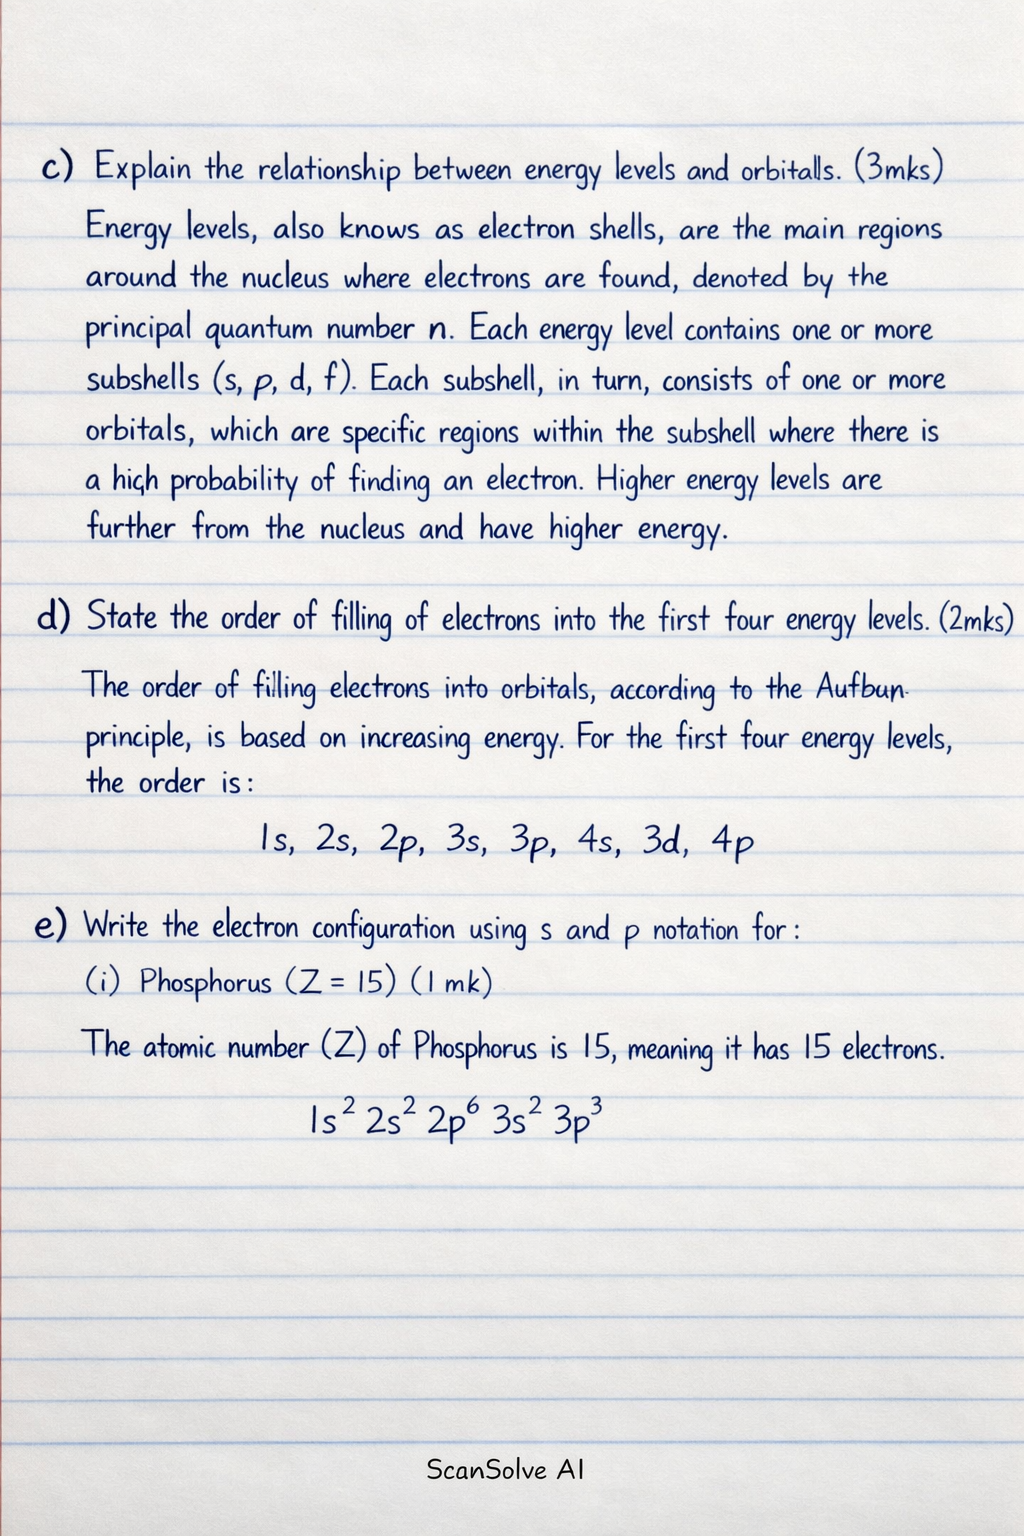 c) Explain the relationship between energy levels and orbitalls. (3mks)
Energy levels, also knows as electron shells, are the main regions
around the nucleus where electrons are found, denoted by the
principal quantum number n. Each energy level contains one or more
subshells (s, p, d, f). Each subshell, in turn, consists of one or more
orbitals, which are specific regions within the subshell where there is
a high probability of finding an electron. Higher energy levels are
further from the nucleus and have higher energy.
d) State the order of filling of electrons into the first four energy levels. (2mks)
The order of filling electrons into orbitals, according to the Aufbun
principle, is based on increasing energy. For the first four energy levels,
the order is:
1s, 2s, 2p, 3s, 3p, 4s, 3d, 4p
e) Write the electron configuration using s and p notation for:
(i) Phosphorus (Z = 15) (1 mk)
The atomic number (Z) of Phosphorus is 15, meaning it has 15 electrons.
1s² 2s² 2p⁶ 3s² 3p³
ScanSolve AI